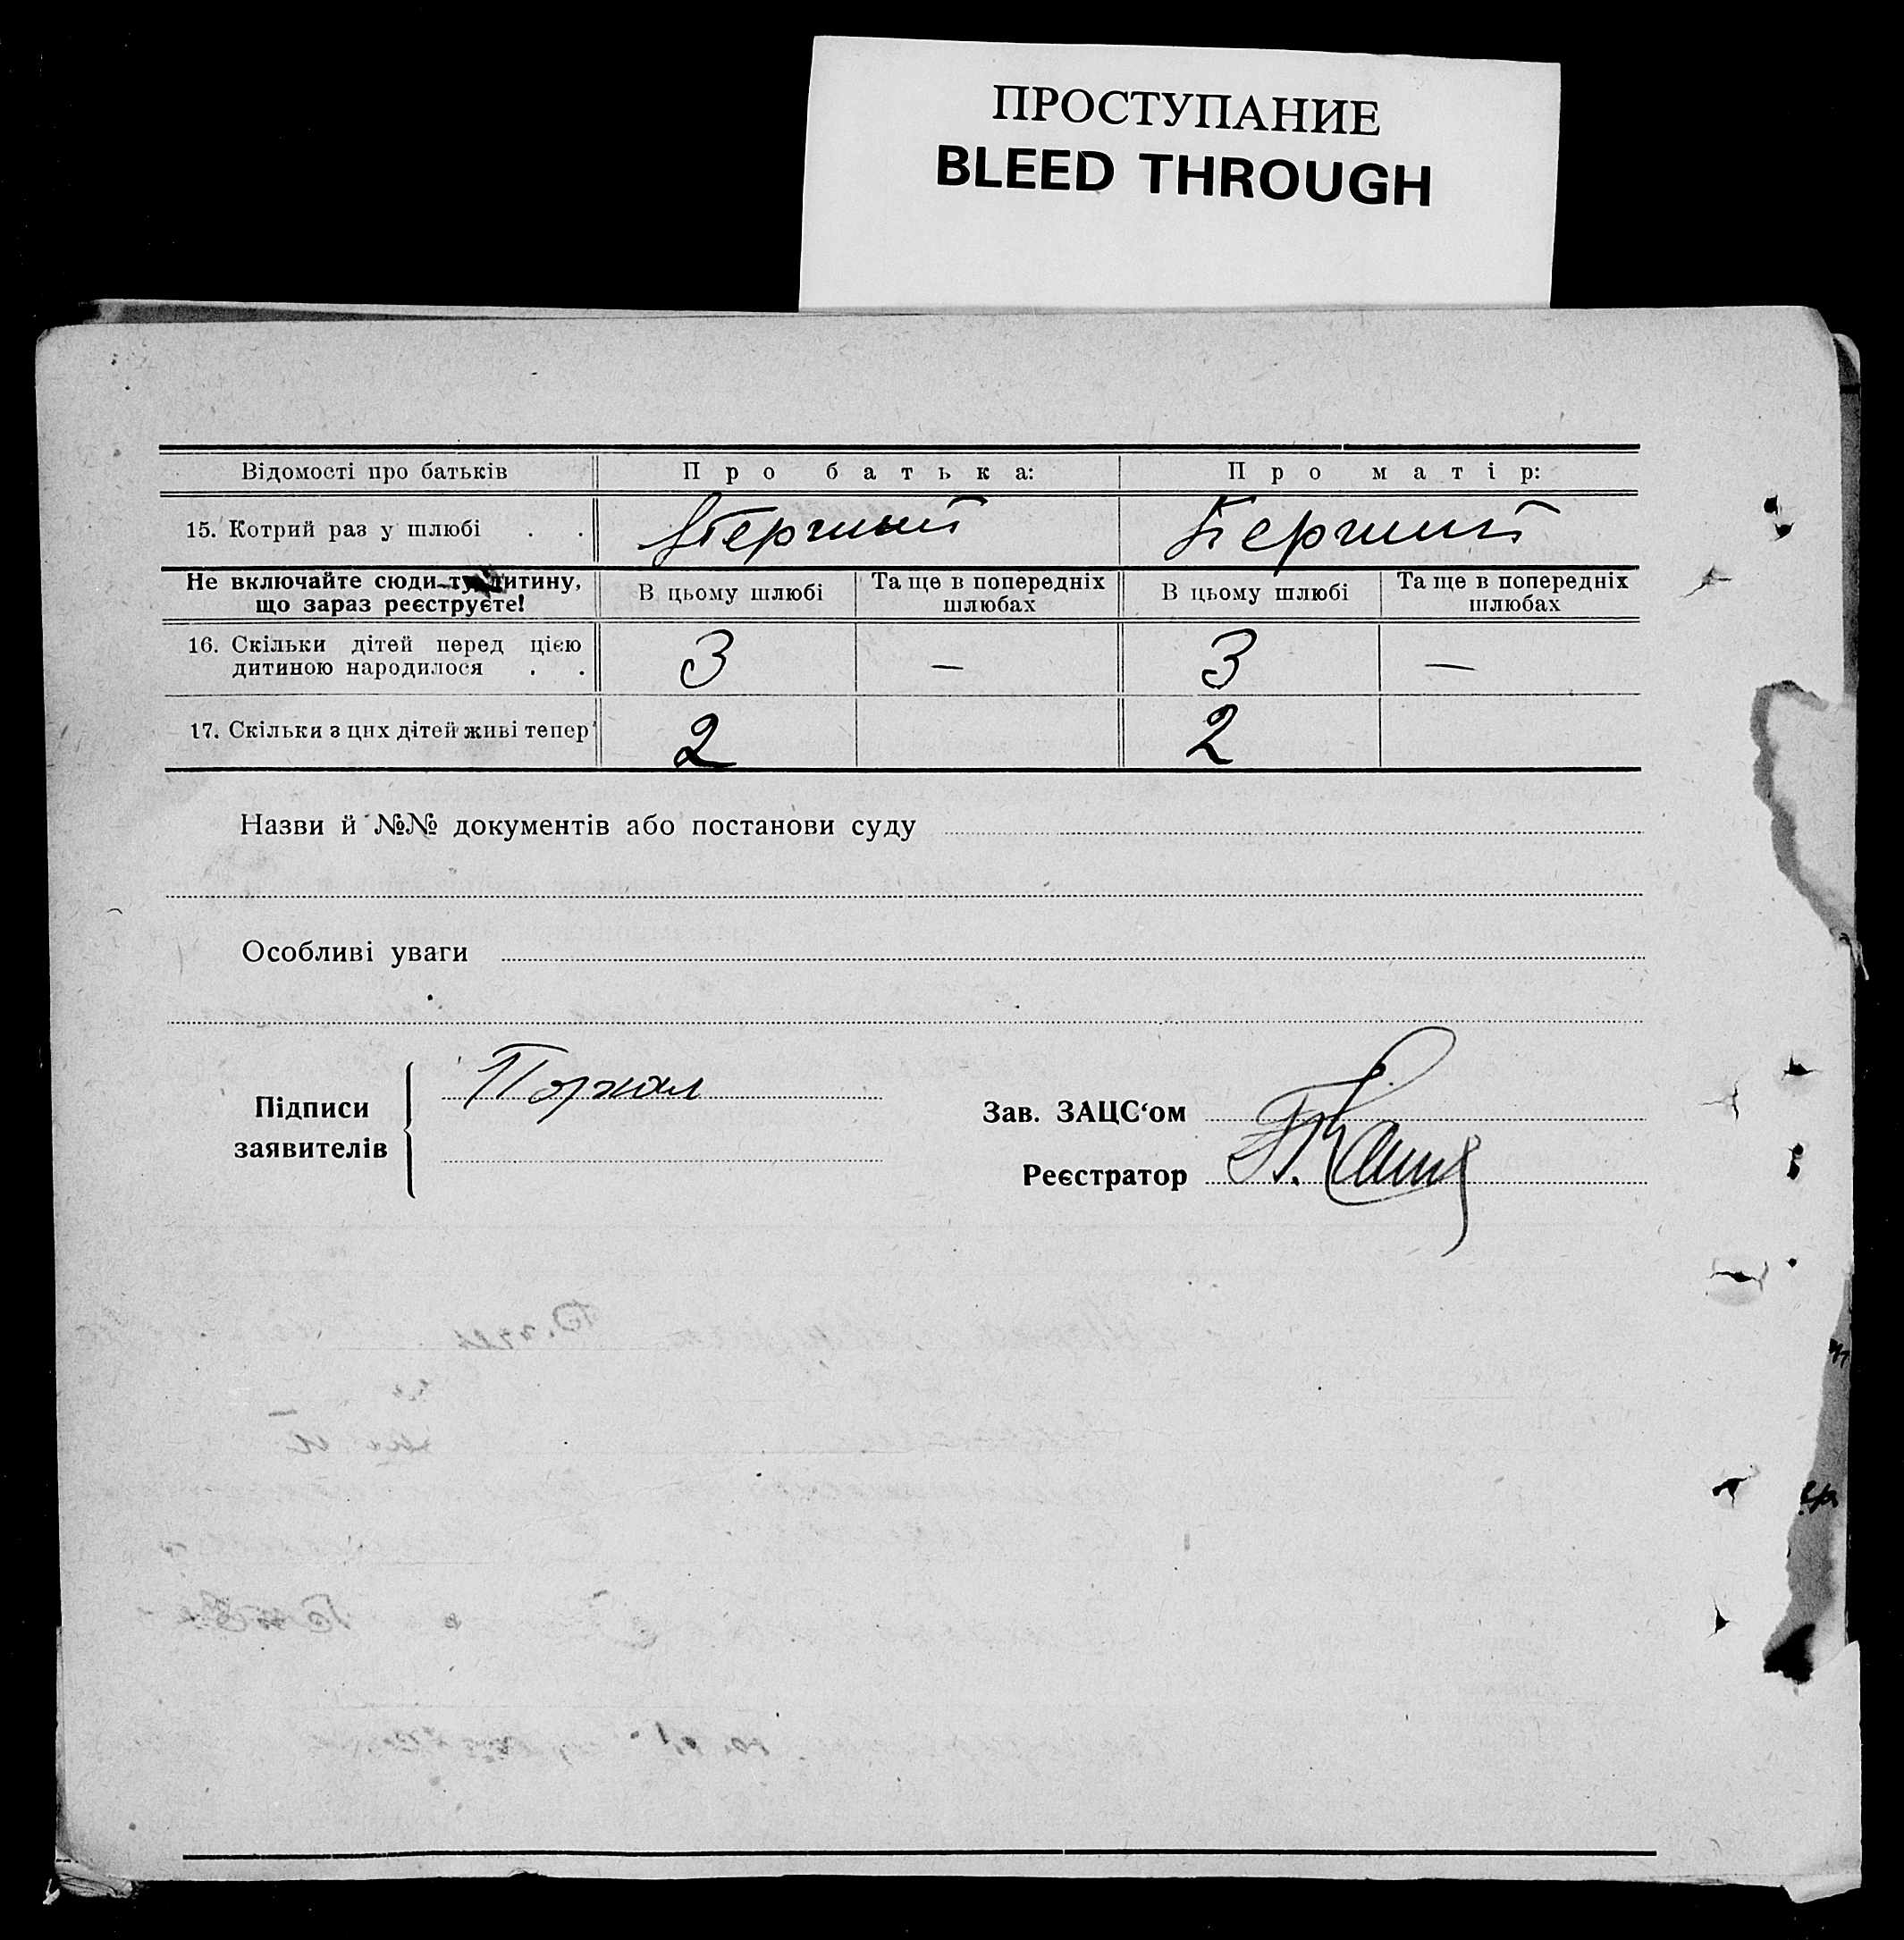 ПРОСТУПАНИЕ
BLEED THROUGH
Відомості про батьків Про батька: Про матір:
15. Котрий раз у шлюбі . . Перший Перший
Не включайте сюди ту дитину, що зараз реєструєте! В цьому шлюбі Та ще в попередніх шлюбах В цьому шлюбі Та ще в попередніх шлюбах
16. Скільки дітей перед цією
дитиною народилося . . 3 — 3 —
17. Скільки з цих дітей живі тепер 2 2
Назви й №№ документів або постанови суду
Особливі уваги
Підписи
заявителів
Зав. ЗАЦС‘ом
Реєстратор